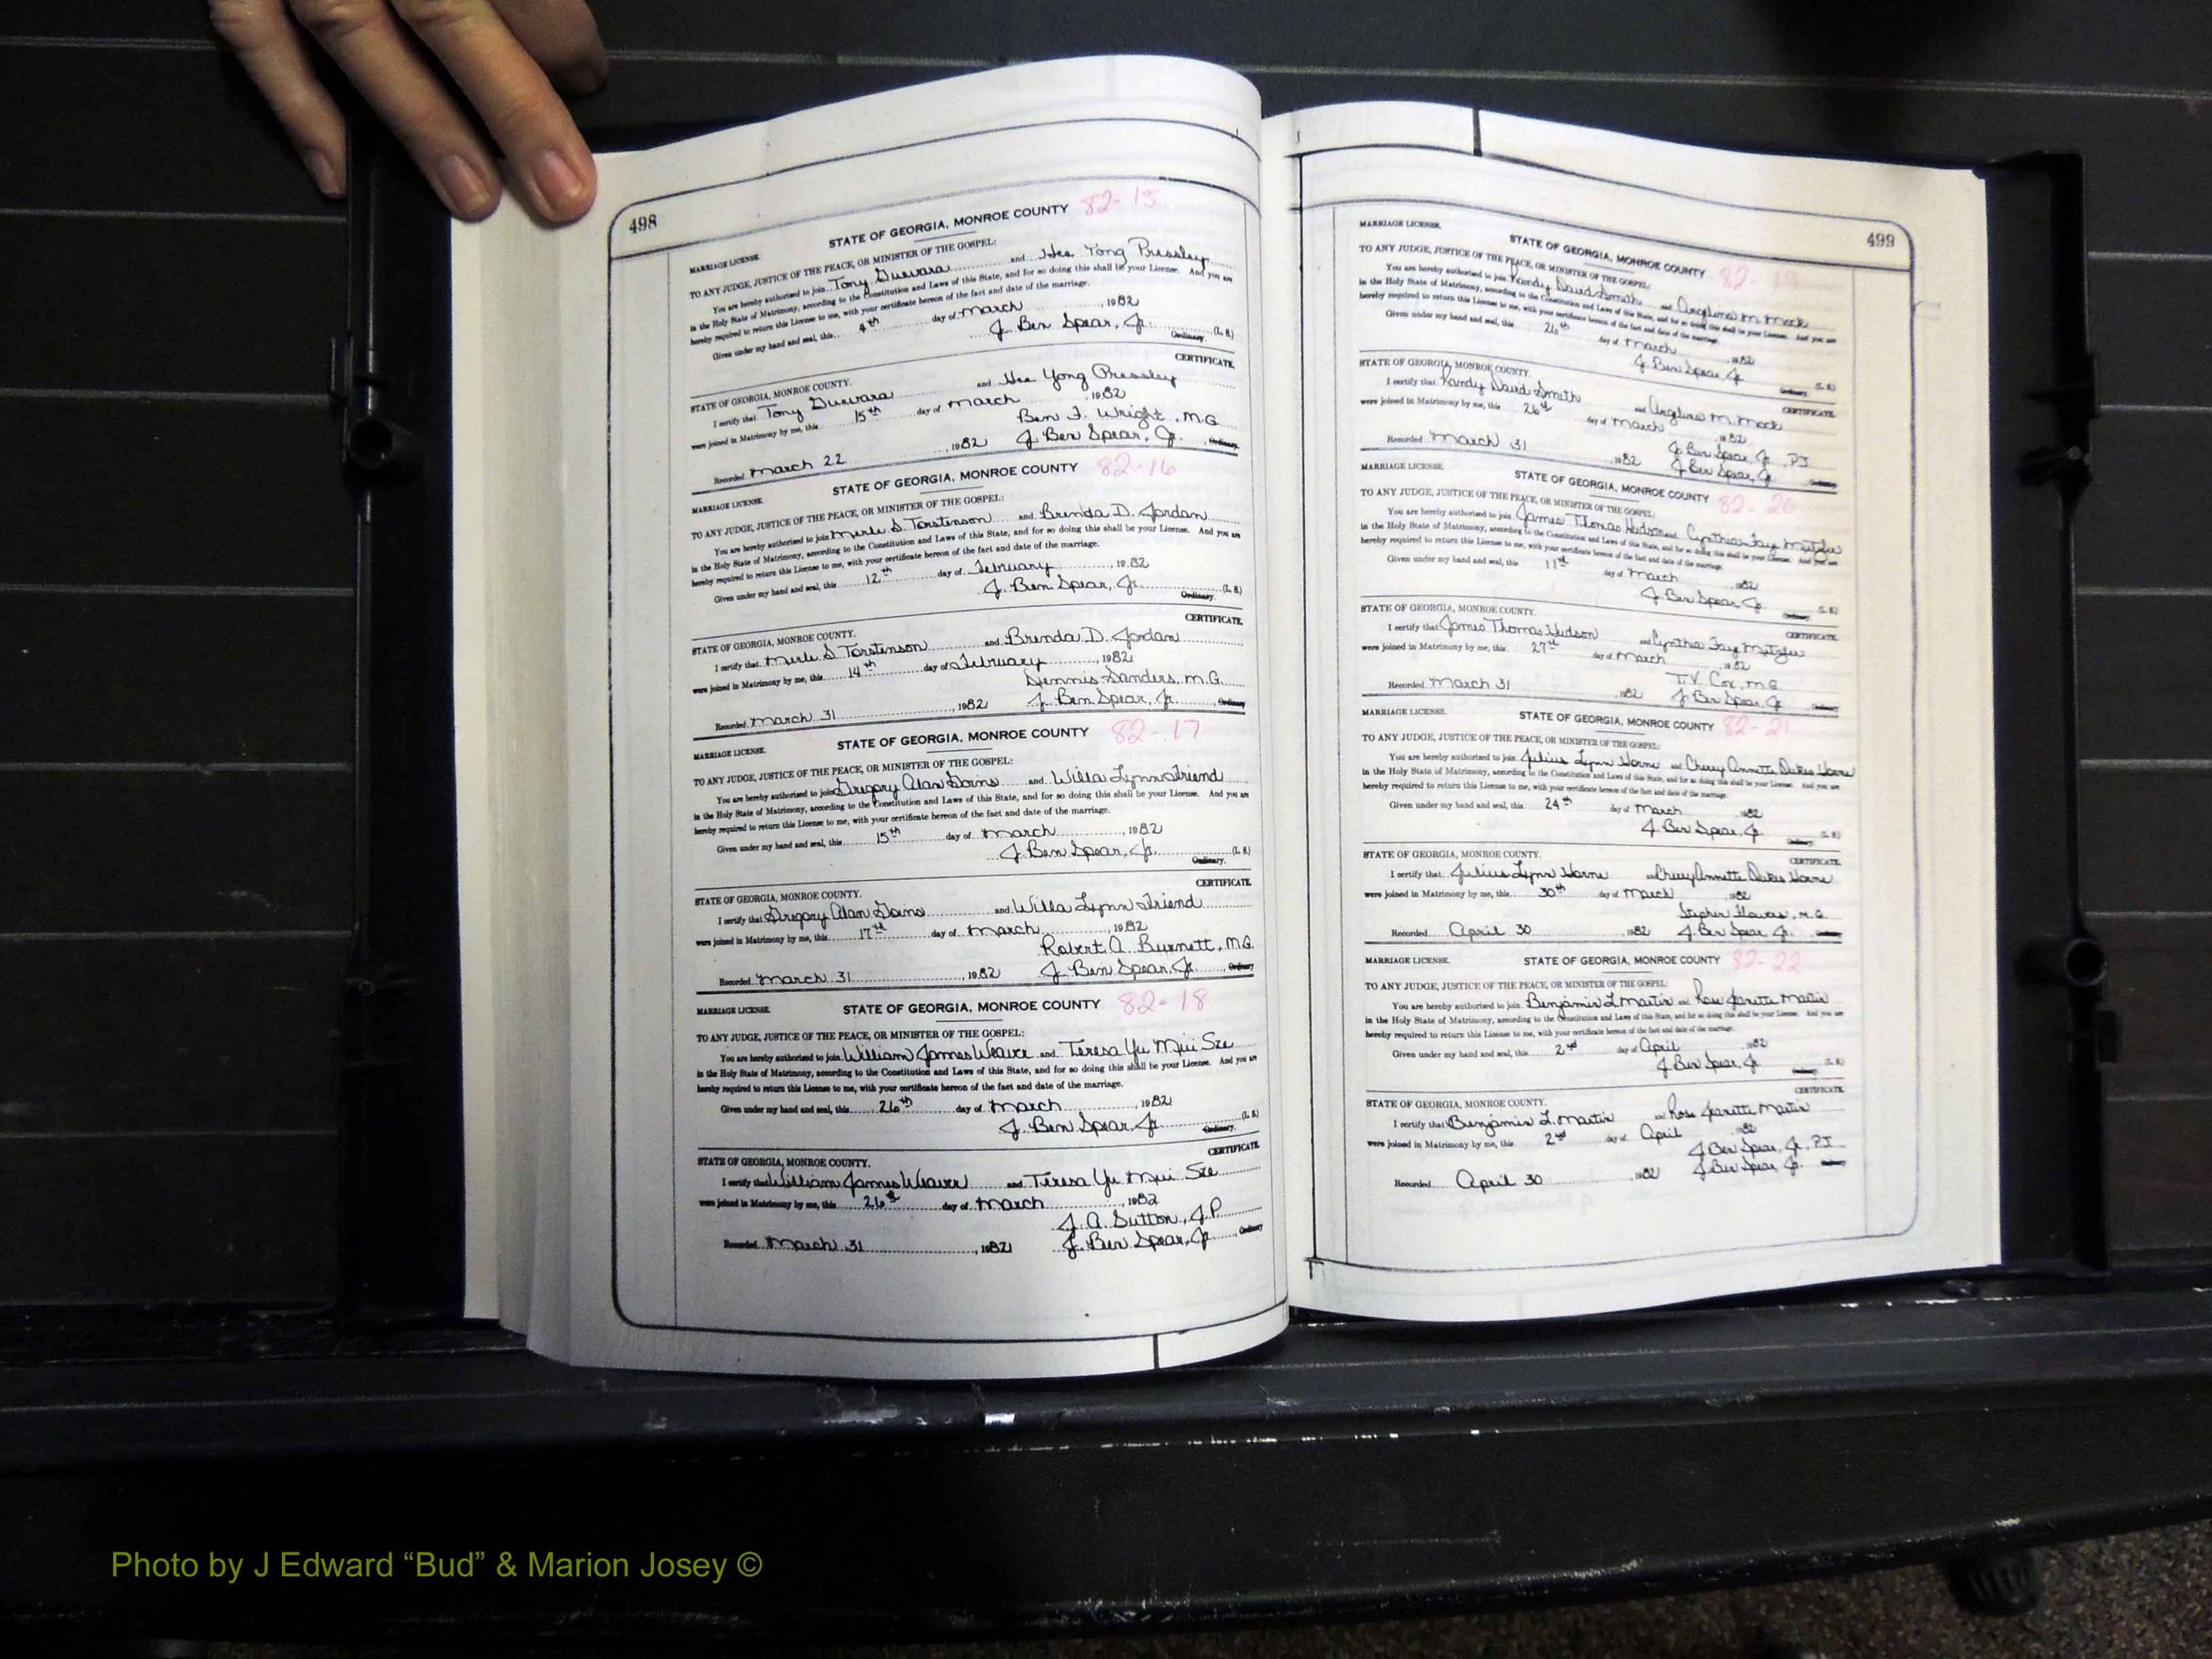 498
STATE OF GEORGIA, MONROE COUNTY 82-15
MARRIAGE LICENSE.
TO ANY JUDGE, JUSTICE OF THE PEACE, OR MINISTER OF THE GOSPEL:
You are hereby authorized to join Tony Guevara and Hea Yong Pressley
in the Holy State of Matrimony, according to the Constitution and Laws of this State, and for so doing this shall be your License. And you are
hereby required to return this License to me, with your certificate hereon of the fact and date of the marriage.
Given under my hand and seal, this 4th day of March, 1982
J. Ben Spear, Jr. (L. S.)
Ordinary.
CERTIFICATE.
STATE OF GEORGIA, MONROE COUNTY.
I certify that Tony Guevara and Hea Yong Pressley
were joined in Matrimony by me, this 15th day of March, 1982
Ben F. Wright, M.G.
Recorded March 22, 1982 J. Ben Spear, Jr., Ordinary.
STATE OF GEORGIA, MONROE COUNTY 82-16
MARRIAGE LICENSE.
TO ANY JUDGE, JUSTICE OF THE PEACE, OR MINISTER OF THE GOSPEL:
You are hereby authorized to join Merle S. Torstenson and Brenda D. Jordan
in the Holy State of Matrimony, according to the Constitution and Laws of this State, and for so doing this shall be your License. And you are
hereby required to return this License to me, with your certificate hereon of the fact and date of the marriage.
Given under my hand and seal, this 12th day of February, 1982
J. Ben Spear, Jr. (L. S.)
Ordinary.
CERTIFICATE.
STATE OF GEORGIA, MONROE COUNTY.
I certify that Merle S. Torstenson and Brenda D. Jordan
were joined in Matrimony by me, this 14th day of February, 1982
Dennis Sanders, M.G.
Recorded March 31, 1982 J. Ben Spear, Jr., Ordinary
STATE OF GEORGIA, MONROE COUNTY 82-17
MARRIAGE LICENSE.
TO ANY JUDGE, JUSTICE OF THE PEACE, OR MINISTER OF THE GOSPEL:
You are hereby authorized to join Gregory Alan Goins and Willa Lynn Friend
in the Holy State of Matrimony, according to the Constitution and Laws of this State, and for so doing this shall be your License. And you are
hereby required to return this License to me, with your certificate hereon of the fact and date of the marriage.
Given under my hand and seal, this 15th day of March, 1982
J. Ben Spear, Jr. (L. S.)
Ordinary.
CERTIFICATE.
STATE OF GEORGIA, MONROE COUNTY.
I certify that Gregory Alan Goins and Willa Lynn Friend
were joined in Matrimony by me, this 17th day of March, 1982
Robert A. Burnett, M.G.
Recorded March 31, 1982 J. Ben Spear, Jr., Ordinary
STATE OF GEORGIA, MONROE COUNTY 82-18
MARRIAGE LICENSE.
TO ANY JUDGE, JUSTICE OF THE PEACE, OR MINISTER OF THE GOSPEL:
You are hereby authorized to join William James Weaver and Teresa Yu Mui Sze
in the Holy State of Matrimony, according to the Constitution and Laws of this State, and for so doing this shall be your License. And you are
hereby required to return this License to me, with your certificate hereon of the fact and date of the marriage.
Given under my hand and seal, this 26th day of March, 1982
J. Ben Spear, Jr. (L. S.)
Ordinary.
CERTIFICATE.
STATE OF GEORGIA, MONROE COUNTY.
I certify that William James Weaver and Teresa Yu Mui Sze
were joined in Matrimony by me, this 26th day of March, 1982
J. A. Sutton, J.P.
Recorded March 31, 1982 J. Ben Spear, Jr., Ordinary
499
MARRIAGE LICENSE.
STATE OF GEORGIA, MONROE COUNTY 82-19
TO ANY JUDGE, JUSTICE OF THE PEACE, OR MINISTER OF THE GOSPEL:
You are hereby authorized to join Randy David Smith and Angelina M. Mock
in the Holy State of Matrimony, according to the Constitution and Laws of this State, and for so doing this shall be your License. And you are
hereby required to return this License to me, with your certificate hereon of the fact and date of the marriage.
Given under my hand and seal, this 26th day of March, 1982
J. Ben Spear, Jr. (L. S.)
Ordinary.
STATE OF GEORGIA, MONROE COUNTY.
CERTIFICATE.
I certify that Randy David Smith and Angelina M. Mock
were joined in Matrimony by me, this 26th day of March, 1982
J. Ben Spear, Jr., P.J.
Recorded March 31, 1982 J. Ben Spear, Jr. Ordinary
MARRIAGE LICENSE.
STATE OF GEORGIA, MONROE COUNTY 82-20
TO ANY JUDGE, JUSTICE OF THE PEACE, OR MINISTER OF THE GOSPEL:
You are hereby authorized to join James Thomas Hudson and Cynthia Fay
in the Holy State of Matrimony, according to the Constitution and Laws of this State, and for so doing this shall be your License. And you are
hereby required to return this License to me, with your certificate hereon of the fact and date of the marriage.
Given under my hand and seal, this 11th day of March, 1982
J. Ben Spear, Jr. (L. S.)
Ordinary.
STATE OF GEORGIA, MONROE COUNTY.
CERTIFICATE.
I certify that James Thomas Hudson and Cynthia Fay
were joined in Matrimony by me, this 27th day of March, 1982
T.V. Cox, M.G.
Recorded March 31, 1982 J. Ben Spear, Jr. Ordinary
MARRIAGE LICENSE.
STATE OF GEORGIA, MONROE COUNTY 82-21
TO ANY JUDGE, JUSTICE OF THE PEACE, OR MINISTER OF THE GOSPEL:
You are hereby authorized to join Julius Lynn Horne and Cheryy Annette Dukes Horne
in the Holy State of Matrimony, according to the Constitution and Laws of this State, and for so doing this shall be your License. And you are
hereby required to return this License to me, with your certificate hereon of the fact and date of the marriage.
Given under my hand and seal, this 24th day of March, 1982
J. Ben Spear, Jr. (L. S.)
Ordinary.
STATE OF GEORGIA, MONROE COUNTY.
CERTIFICATE.
I certify that Julius Lynn Horne and Cheryy Annette Dukes Horne
were joined in Matrimony by me, this 30th day of March, 1982
Stephen Flowers, M.G.
Recorded April 30, 1982 J. Ben Spear, Jr. Ordinary
MARRIAGE LICENSE.
STATE OF GEORGIA, MONROE COUNTY 82-22
TO ANY JUDGE, JUSTICE OF THE PEACE, OR MINISTER OF THE GOSPEL:
You are hereby authorized to join Benjamin L. Martin and Rose Jeanette Martin
in the Holy State of Matrimony, according to the Constitution and Laws of this State, and for so doing this shall be your License. And you are
hereby required to return this License to me, with your certificate hereon of the fact and date of the marriage.
Given under my hand and seal, this 2nd day of April, 1982
J. Ben Spear, Jr. (L. S.)
CERTIFICATE.
STATE OF GEORGIA, MONROE COUNTY.
I certify that Benjamin L. Martin and Rose Jeanette Martin
were joined in Matrimony by me, this 2nd day of April, 1982
J. Ben Spear, Jr., P.J.
Recorded April 30, 1982 J. Ben Spear, Jr. Ordinary
Photo by J Edward “Bud” & Marion Josey ©